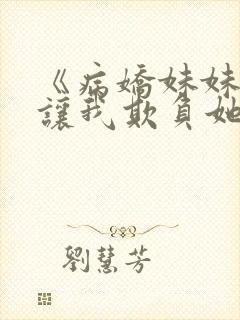 《病嬌妹妹
讓我欺負她
劉慧芳